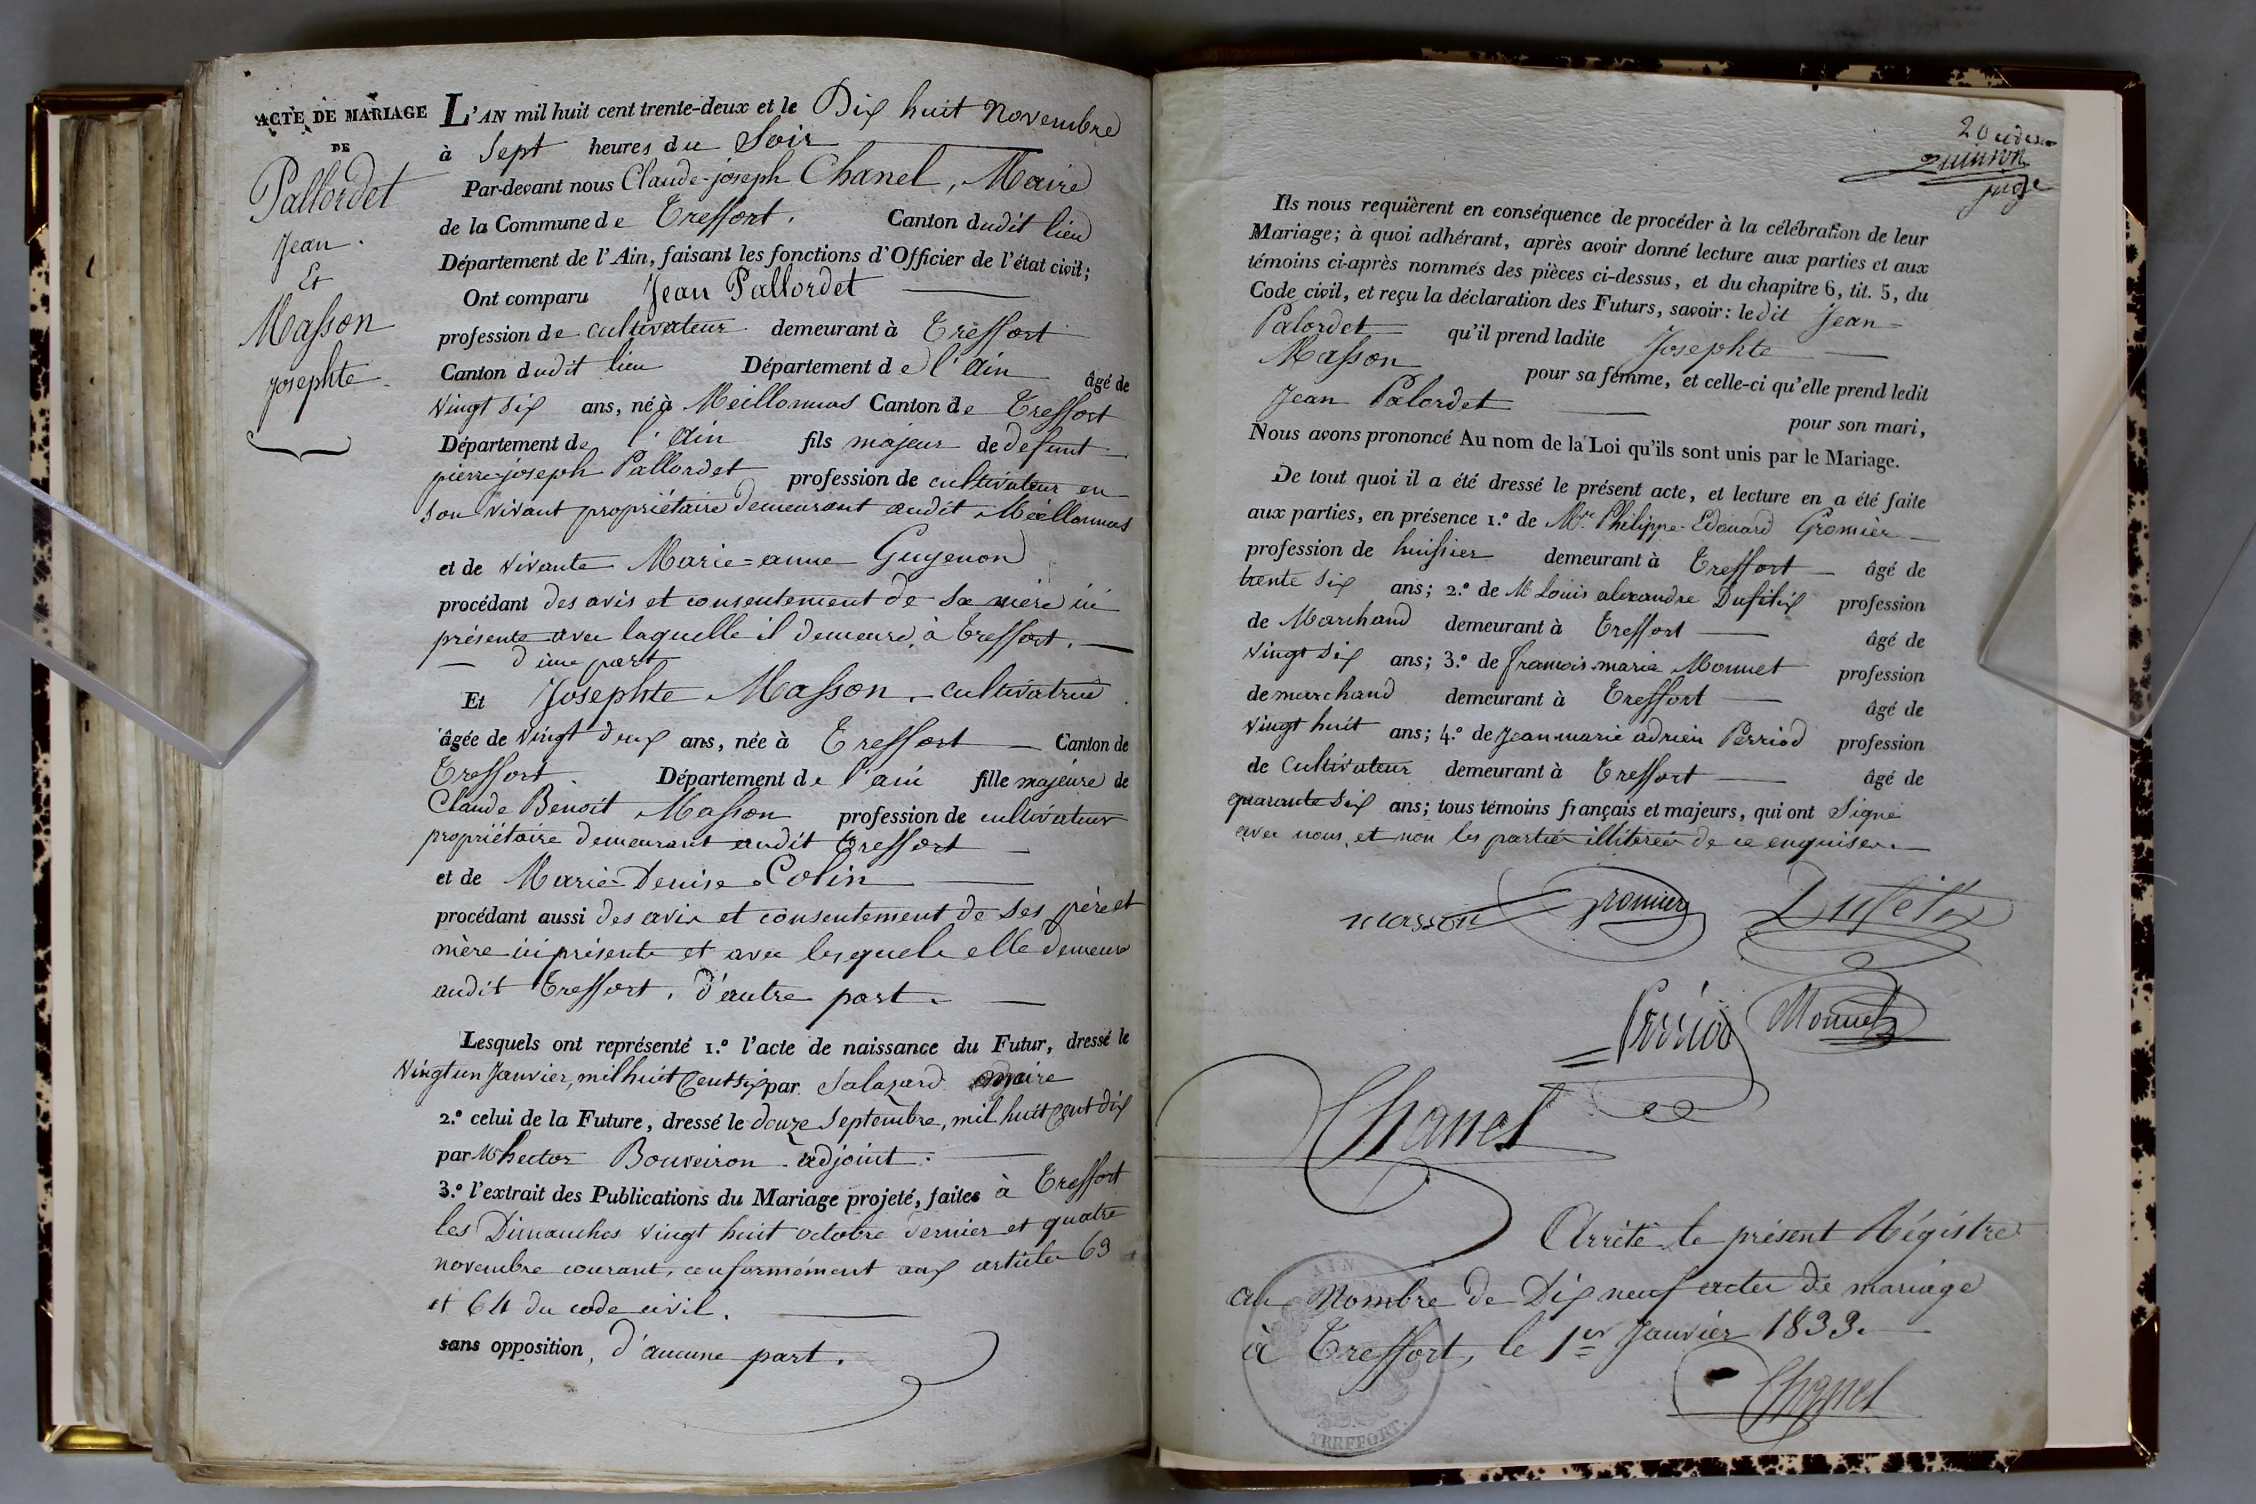 ACTE DE MARIAGE
DE
Pallordet
Jean.
Et
Masson
Josephte.
L'AN mil huit cent trente-deux et le Dix huit Novembre
à Sept heures du Soir
Par-devant nous Claude-joseph Chanel, Maire
de la Commune de Treffort. Canton dudit lieu
Département de l'Ain, faisant les fonctions d'Officier de l'état civil;
Ont comparu Jean Pallordet
profession de cultivateur demeurant à Treffort
Canton dudit lieu Département de l'ain âgé de
vingt six ans, né à Meillonnas Canton de Treffort
Département de l'ain fils majeur de defunt
pierre-joseph Pallordet profession de cultivateur en
son vivant propriétaire demeurant audit Meillonnas
et de vivante Marie=anne Guyenon
procédant des avis et consentement de sa mère ici
présente avec laquelle il demeure, à Treffort.
d'une part
Et Josephte Masson. cultivatrice
âgée de vingt deux ans, née à Treffort Canton de
Treffort. Département de l'ain fille majeure de
Claude Benoit Masson profession de cultivateur
propriétaire demeurant audit Treffort
et de Marie-Denise Colin
procédant aussi des avis et consentement de ses père et
mère ici présents et avec lesquels elle demeure
audit Treffort, d'autre part.
Lesquels ont représenté 1.º l'acte de naissance du Futur, dressé le
vingt un Janvier, mil huit Cent six par Salazard maire
2.º celui de la Future, dressé le douze Septembre, mil huit Cent dix
par Mr hector Bouveiron adjoint.
3.º l'extrait des Publications du Mariage projeté, faites à Treffort
les Dimanches vingt huit octobre dernier et quatre
novembre courant, conformément aux articles 63
et 64 du code civil.
sans opposition, d'aucune part.
juge
Ils nous requièrent en conséquence de procéder à la célébration de leur
Mariage; à quoi adhérant, après avoir donné lecture aux parties et aux
témoins ci-après nommés des pièces ci-dessus, et du chapitre 6, tit. 5, du
Code civil, et reçu la déclaration des Futurs, savoir: ledit Jean
Palordet qu'il prend ladite Josephte
Masson pour sa femme, et celle-ci qu'elle prend ledit
Jean Palordet pour son mari,
Nous avons prononcé Au nom de la Loi qu'ils sont unis par le Mariage.
De tout quoi il a été dressé le présent acte, et lecture en a été faite
aux parties, en présence 1.º de Mr. Philippe-Edouard Gromier
profession de huissier demeurant à Treffort âgé de
trente six ans; 2.º de Mr Louis alexandre Dufétix profession
de Marchand demeurant à Treffort âgé de
vingt six ans; 3.º de françois-marie Monnet profession
de marchand demeurant à Treffort âgé de
vingt huit ans; 4.º de Jean marie adrien Perriod profession
de Cultivateur demeurant à Treffort âgé de
quarante six ans; tous témoins français et majeurs, qui ont Signé
avec nous, et non les parties illiterées de ce enquises.
masson Gromier
Monnet
Chanel
Arrêté le présent Régistre
au Nombre de Dix neuf actes de mariage
à Treffort, le 1er Janvier 1833.
Chanel
AIN
TREFFORT.